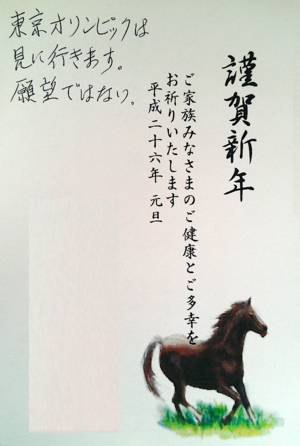 謹賀新年
ご家族みなさまのご健康とご多幸を
お祈りいたします
平成二十六年 元旦
東京オリンピックは
見に行きます。
願望ではない。